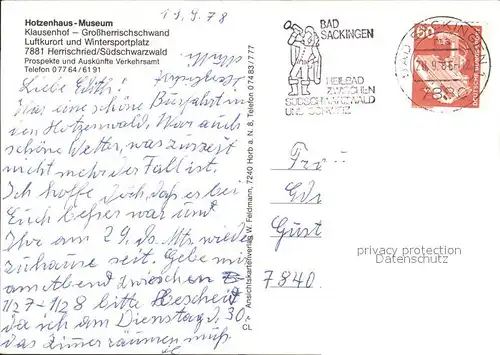 19.9.78
Hotzenhaus-Museum
Klausenhof – Großherrischschwand
Luftkurort und Wintersportplatz
7881 Herrischried/Südschwarzwald
Prospekte und Auskünfte Verkehrsamt
Telefon 07764/6191
Liebe Edith!
Was eine schöne Busfahrt in
den Hotzenwald. War auch
schönes Wetter, was zurzeit
nicht mehr der Fall ist.
Ich hoffe doch, daß es bei
Euch besser war und
Ihr am 29. ds. Mts. wieder
zuhause seit. Gebe mir
am Abend zwischen
1/2 7 - 1/2 8 bitte Bescheid
da ich am Dienstag d. 30.
das Zimmer räumen muß.
CL
Ansichtskartenverlag W. Feldmann, 7240 Horb a. N. 8, Telefon 07483/777
BAD
SÄCKINGEN
HEILBAD
ZWISCHEN
SÜDSCHWARZWALD
UND
60
7880
privacy protection
Dokumentation
7840